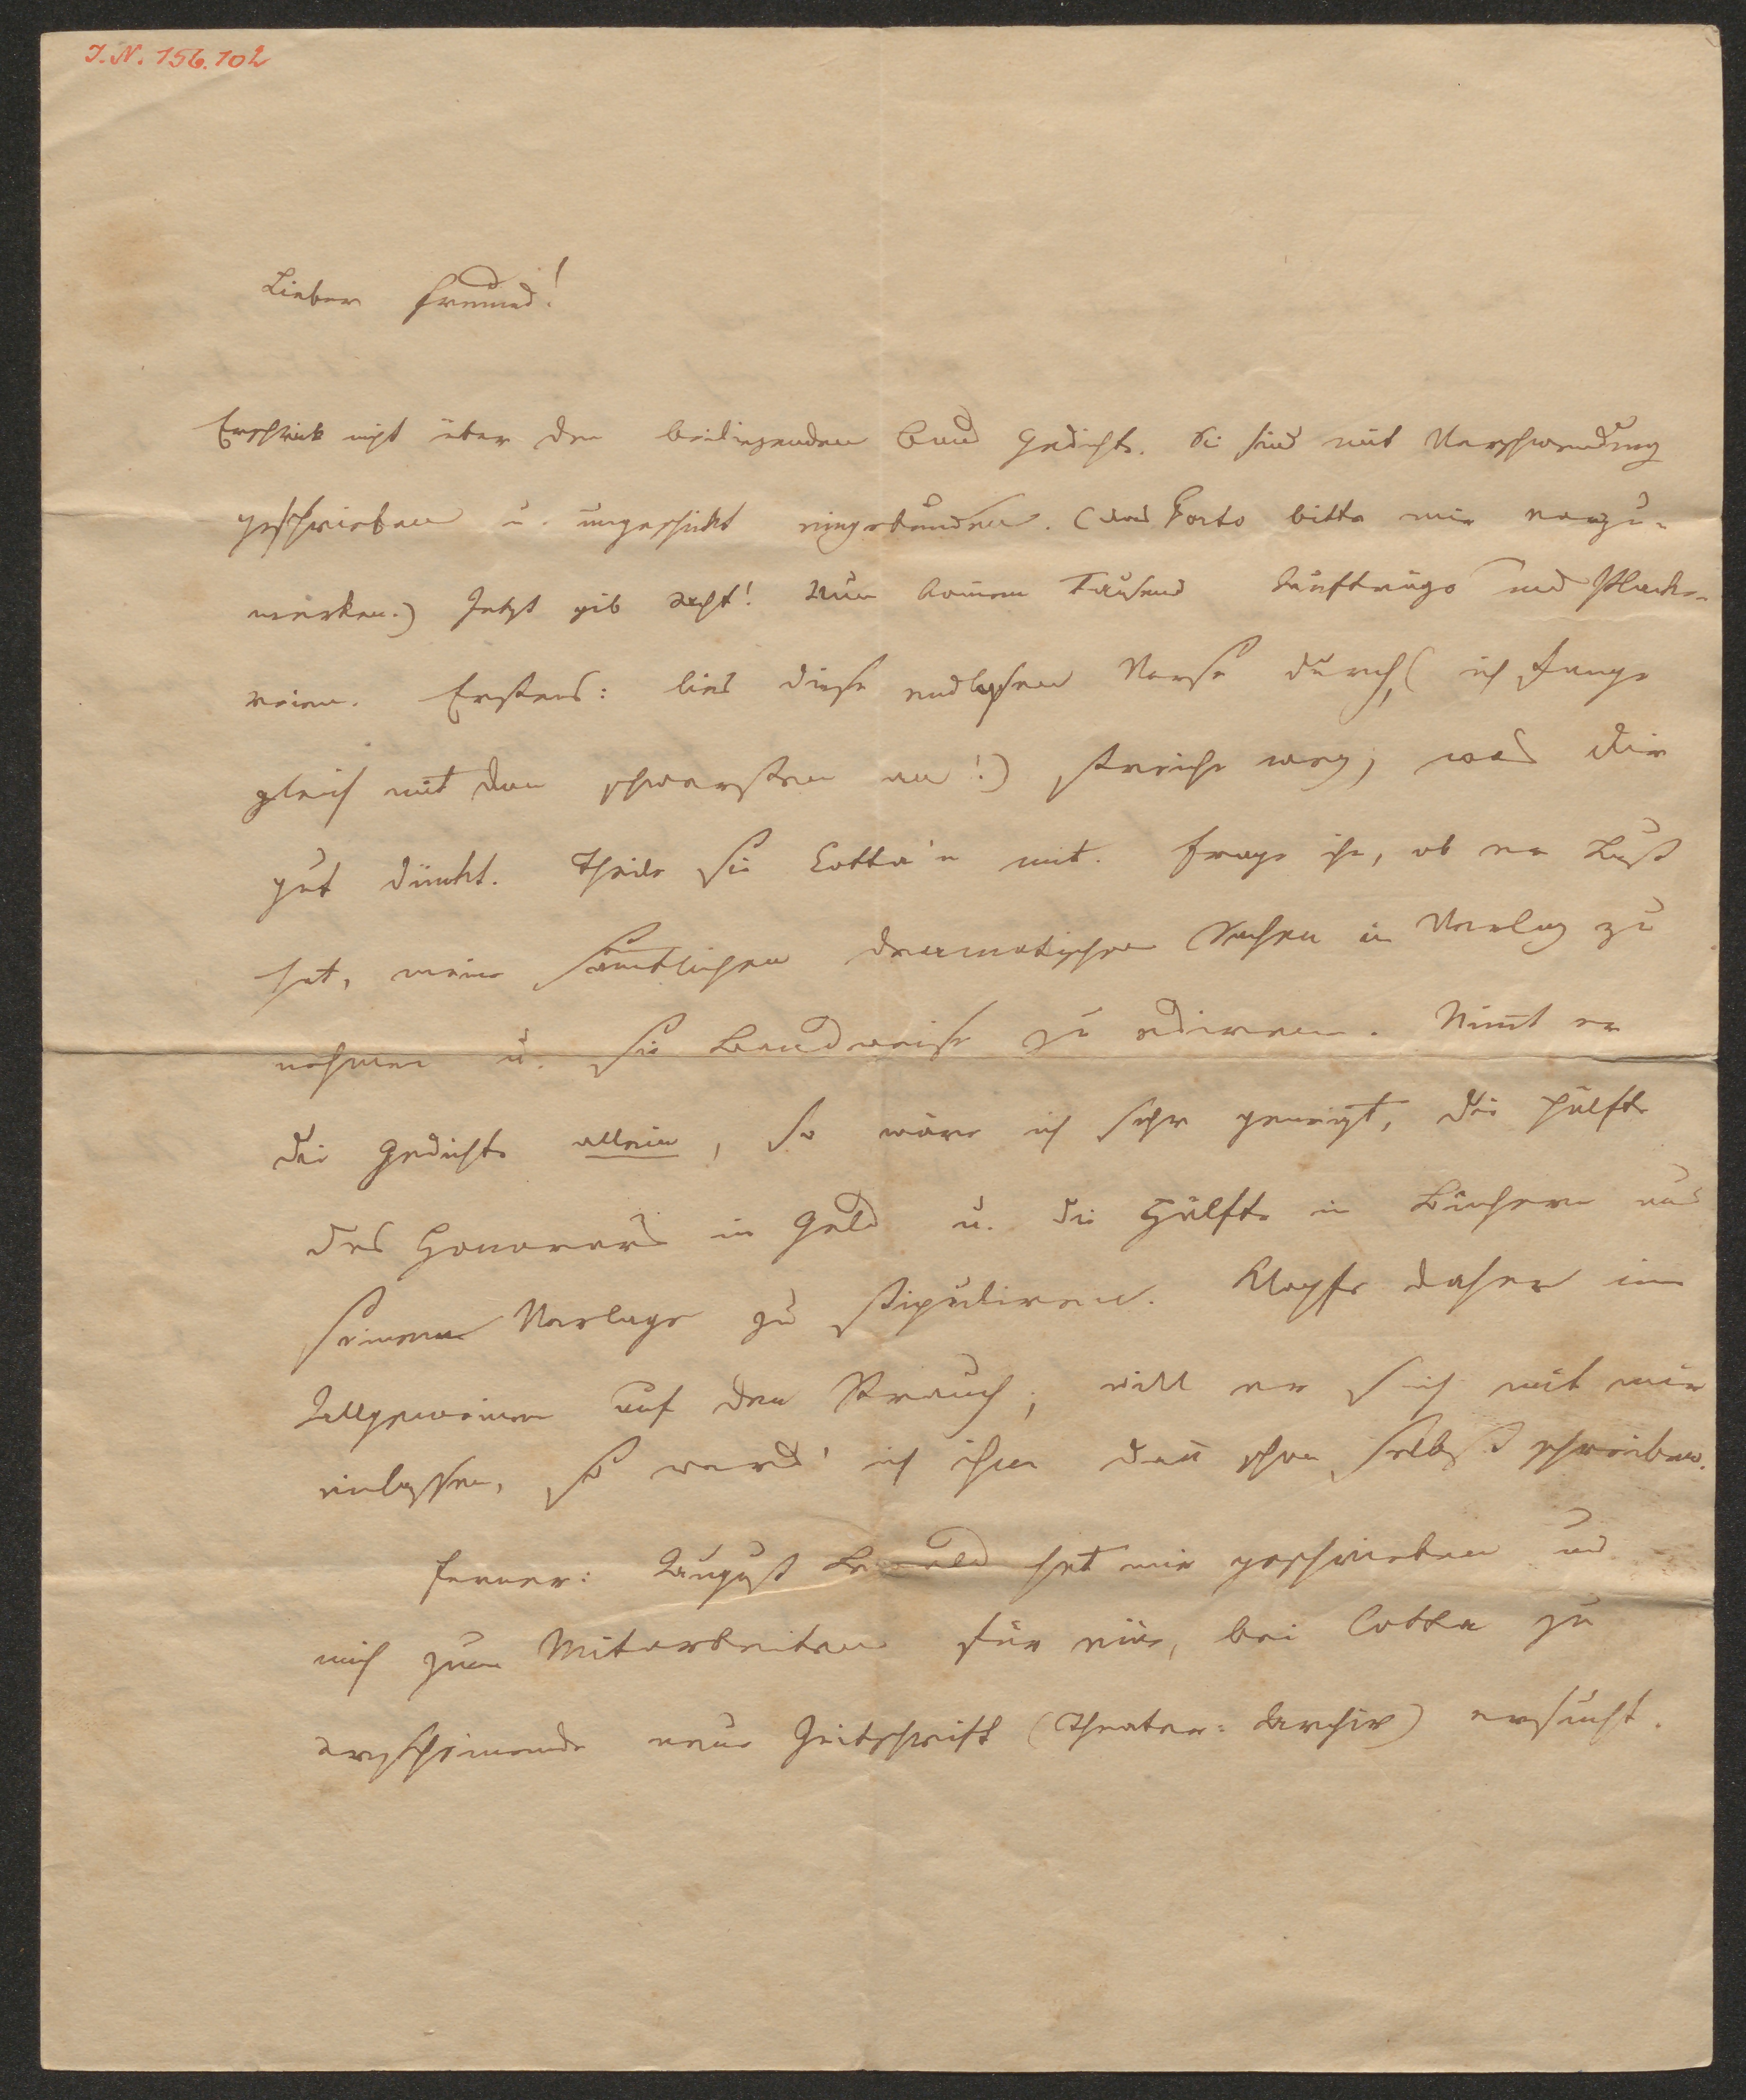 I.N. 156.102
Lieber Freund!
Erschrick nicht über den beiliegenden Band Gedichte. Sie sind mit Verschwendung
geschrieben u. ungeschickt eingebunden. (das Porto bitte mir anzu-
merken.) Jetzt gib Acht! Nun kommen Tausend Aufträge und Placke-
reien. Erstens: lies diese endlosen Verse durch, (ich fange
gleich mit dem schwersten an!) streiche weg, was Dir
gut dünkt. Theile sie Cotta'n mit. Frage ihn, ob er Lust
hat, meine sämtlichen dramatischen Sachen in Verlag zu
nehmen u. sie Bandweise zu ediren. Nimt er
die Gedichte allein, so wäre ich sehr geneigt, die Hälfte
des Honorars in Geld u. die Hälfte in Büchern aus
seinem Verlage zu stipuliren. Klopfe daher im
Allgemeinen auf den Strauch; will er sich mit mir
einlassen, so werd' ich ihm dañ schon selbst schreiben.
Ferner: August Lewald hat mir geschrieben und
mich zum Mitarbeiten für eine, bei Cotta zu
erscheinende neue Zeitschrift (Theater-Archiv) ersucht.